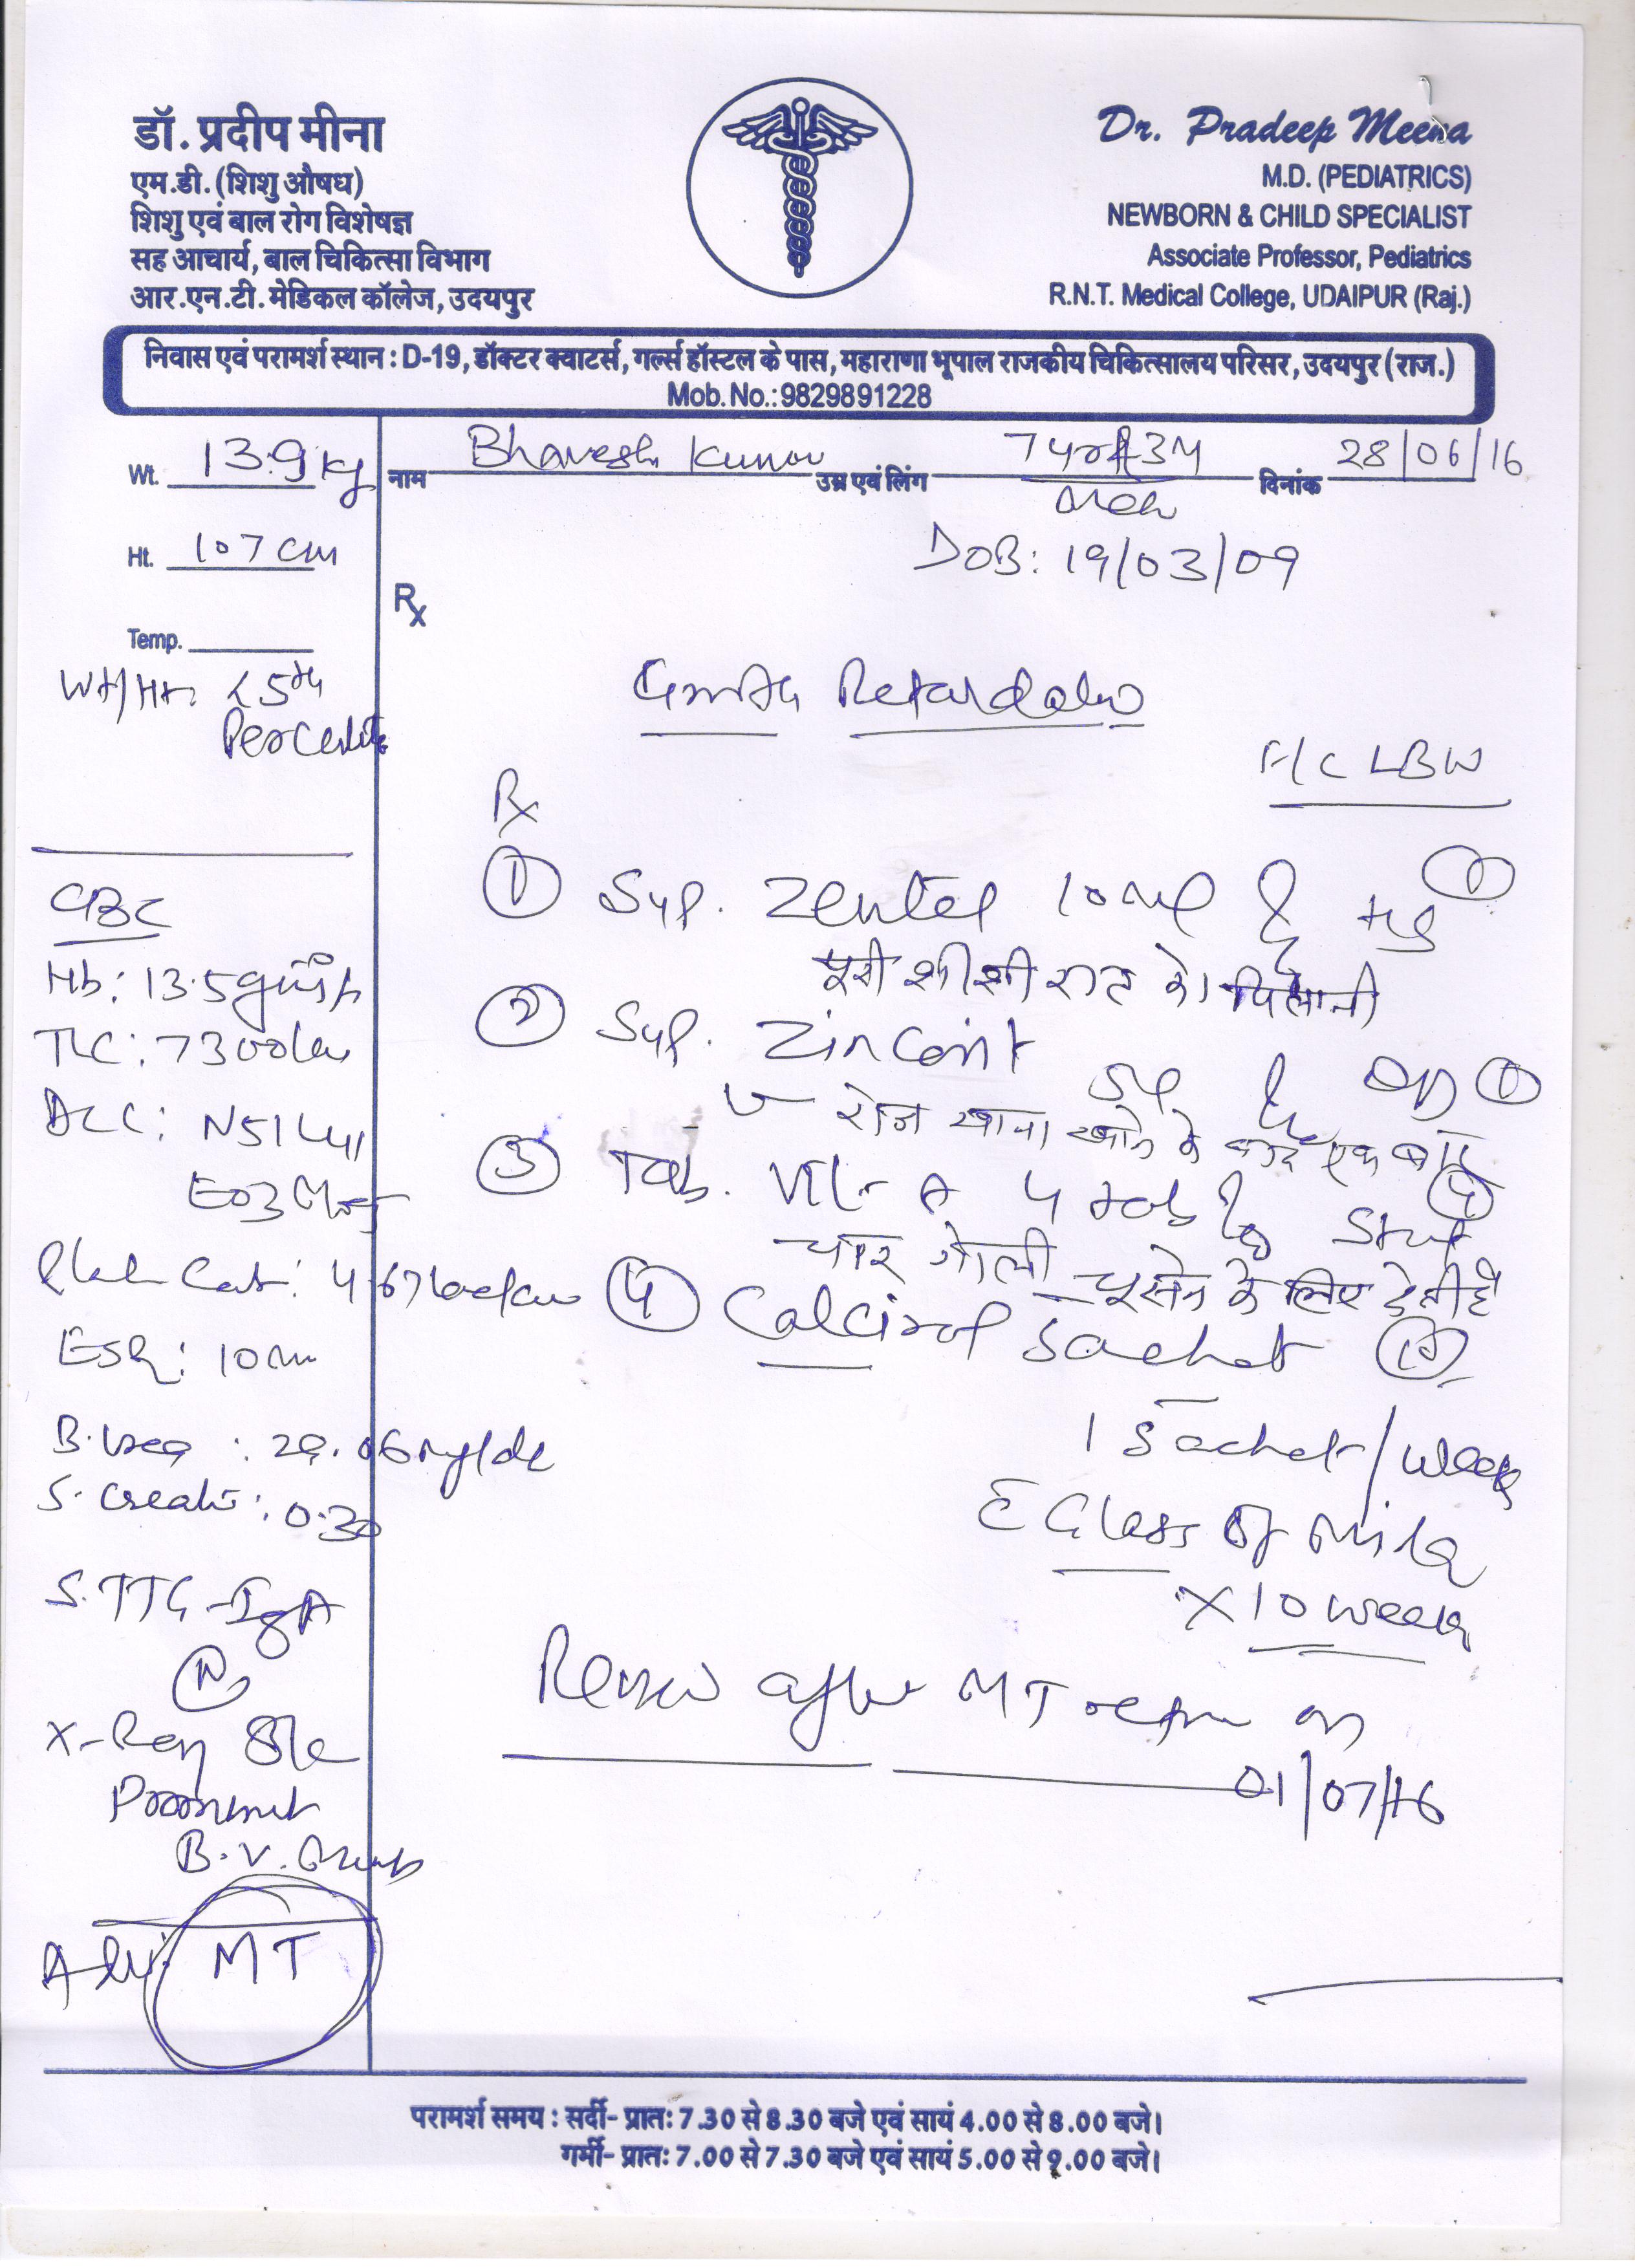 डॉ. प्रदीप मीना
एम.डी. (शिशु औषध)
शिशु एवं बाल रोग विशेषज्ञ
सह आचार्य, बाल चिकित्सा विभाग
आर.एन.टी. मेडिकल कॉलेज, उदयपुर
Dr. Pradeep Meena
M.D. (PEDIATRICS)
NEWBORN & CHILD SPECIALIST
Associate Professor, Pediatrics
R.N.T. Medical College, UDAIPUR (Raj.)
निवास एवं परामर्श स्थान : D-19, डॉक्टर क्वाटर्स, गर्ल्स हॉस्टल के पास, महाराणा भूपाल राजकीय चिकित्सालय परिसर, उदयपुर (राज.)
Mob. No.: 9829891228
Wt. 13.9 kg
नाम Bhavesh Kumar उम्र एवं लिंग 7 3M दिनांक 28/06/16
DOB: 19/03/09
Ht. 107 cm
Rx
Temp.
Wt/Ht: <5th
Percentile
Growth Retardation
LBW
Rx
① Syp. Zentel 10 ml HS ①
पूरी शीशी रात को पिलानी
② Syp. Zinconit
5ml OD ①
रोज खाना खाने के बाद एक बार
③ Tab. Vit-A 4 Tab Stat
चार गोली चूसने के लिए देनी है
④ Calcirol Sachet ⑩
1 Sachet/week
Glass of Milk
X 10 week
Review after MT report on
01/07/16
CBC
Hb: 13.5
TLC: 7300
DLC: N51 L41
E03
ESR: 10
B. Urea : 29.06 mg/dl
S. Creati: 0.30
S. TTG-IgA
(N)
X-Ray
Prominent
B.V.
Adv: MT
परामर्श समय : सर्दी- प्रातः 7.30 से 8.30 बजे एवं सायं 4.00 से 8.00 बजे।
गर्मी- प्रातः 7.00 से 7.30 बजे एवं सायं 5.00 से 9.00 बजे।